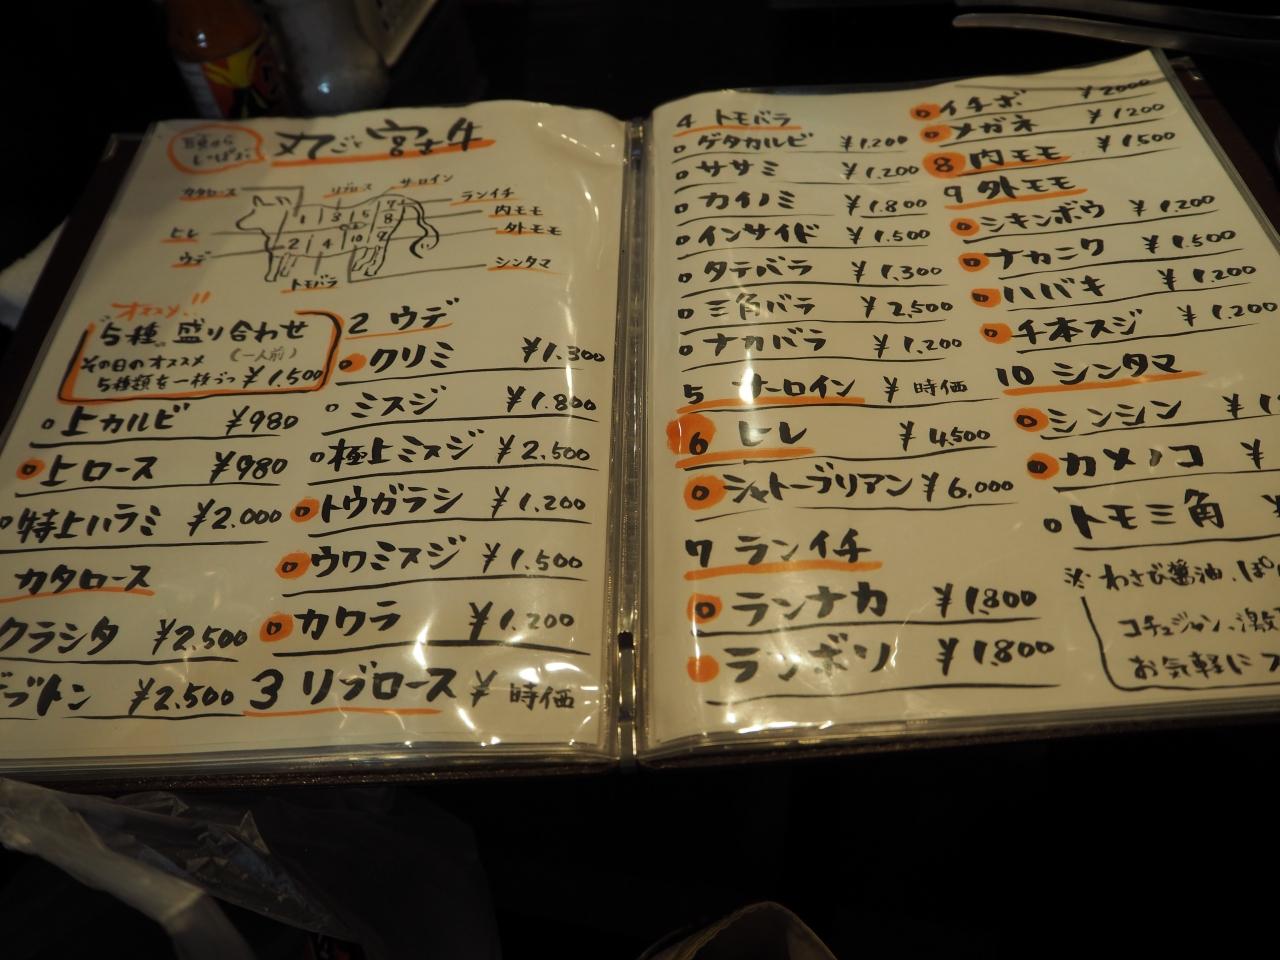 頭から
しっぽまで
丸ごと宮子牛
カタロース
リブロース
サーロイン
ランイチ
内モモ
外モモ
ヒレ
ウデ
トモバラ
シンタマ
1 3 5 7
8
2 4 10 9
オススメ!!
5種盛り合わせ
その日のオススメ (一人前)
5種類を一枚づつ ¥1,500
上カルビ ¥980
上ロース ¥980
特上ハラミ ¥2.000
カタロース
クラシタ ¥2.500
ブトン ¥2.500
2 ウデ
クリミ ¥1.300
ミスジ ¥1.800
極上ミスジ ¥2.500
トウガラシ ¥1.200
ウワミスジ ¥1.500
カワラ ¥1.200
3 リブロース ¥時価
4 トモバラ
ゲタカルビ ¥1.200
ササミ ¥1.200
カイノミ ¥1.800
インサイド ¥1.500
タテバラ ¥1.300
三角バラ ¥2,500
ナカバラ ¥1,200
5 サーロイン ¥時価
6 ヒレ ¥4,500
シャトーブリアン ¥6,000
7 ランイチ
ランナカ ¥1.800
ランボソ ¥1.800
イチボ ¥2000
メガネ ¥1200
8 内モモ ¥1,500
9 外モモ
シキンボウ ¥1.200
ナカニク ¥1.500
ハバキ ¥1.200
千本スジ ¥1.200
10 シンタマ
シンシン ¥1
カメノコ ¥
トモ三角 ¥
※わさび醤油、ぽ
コチュジャン、激
お気軽に